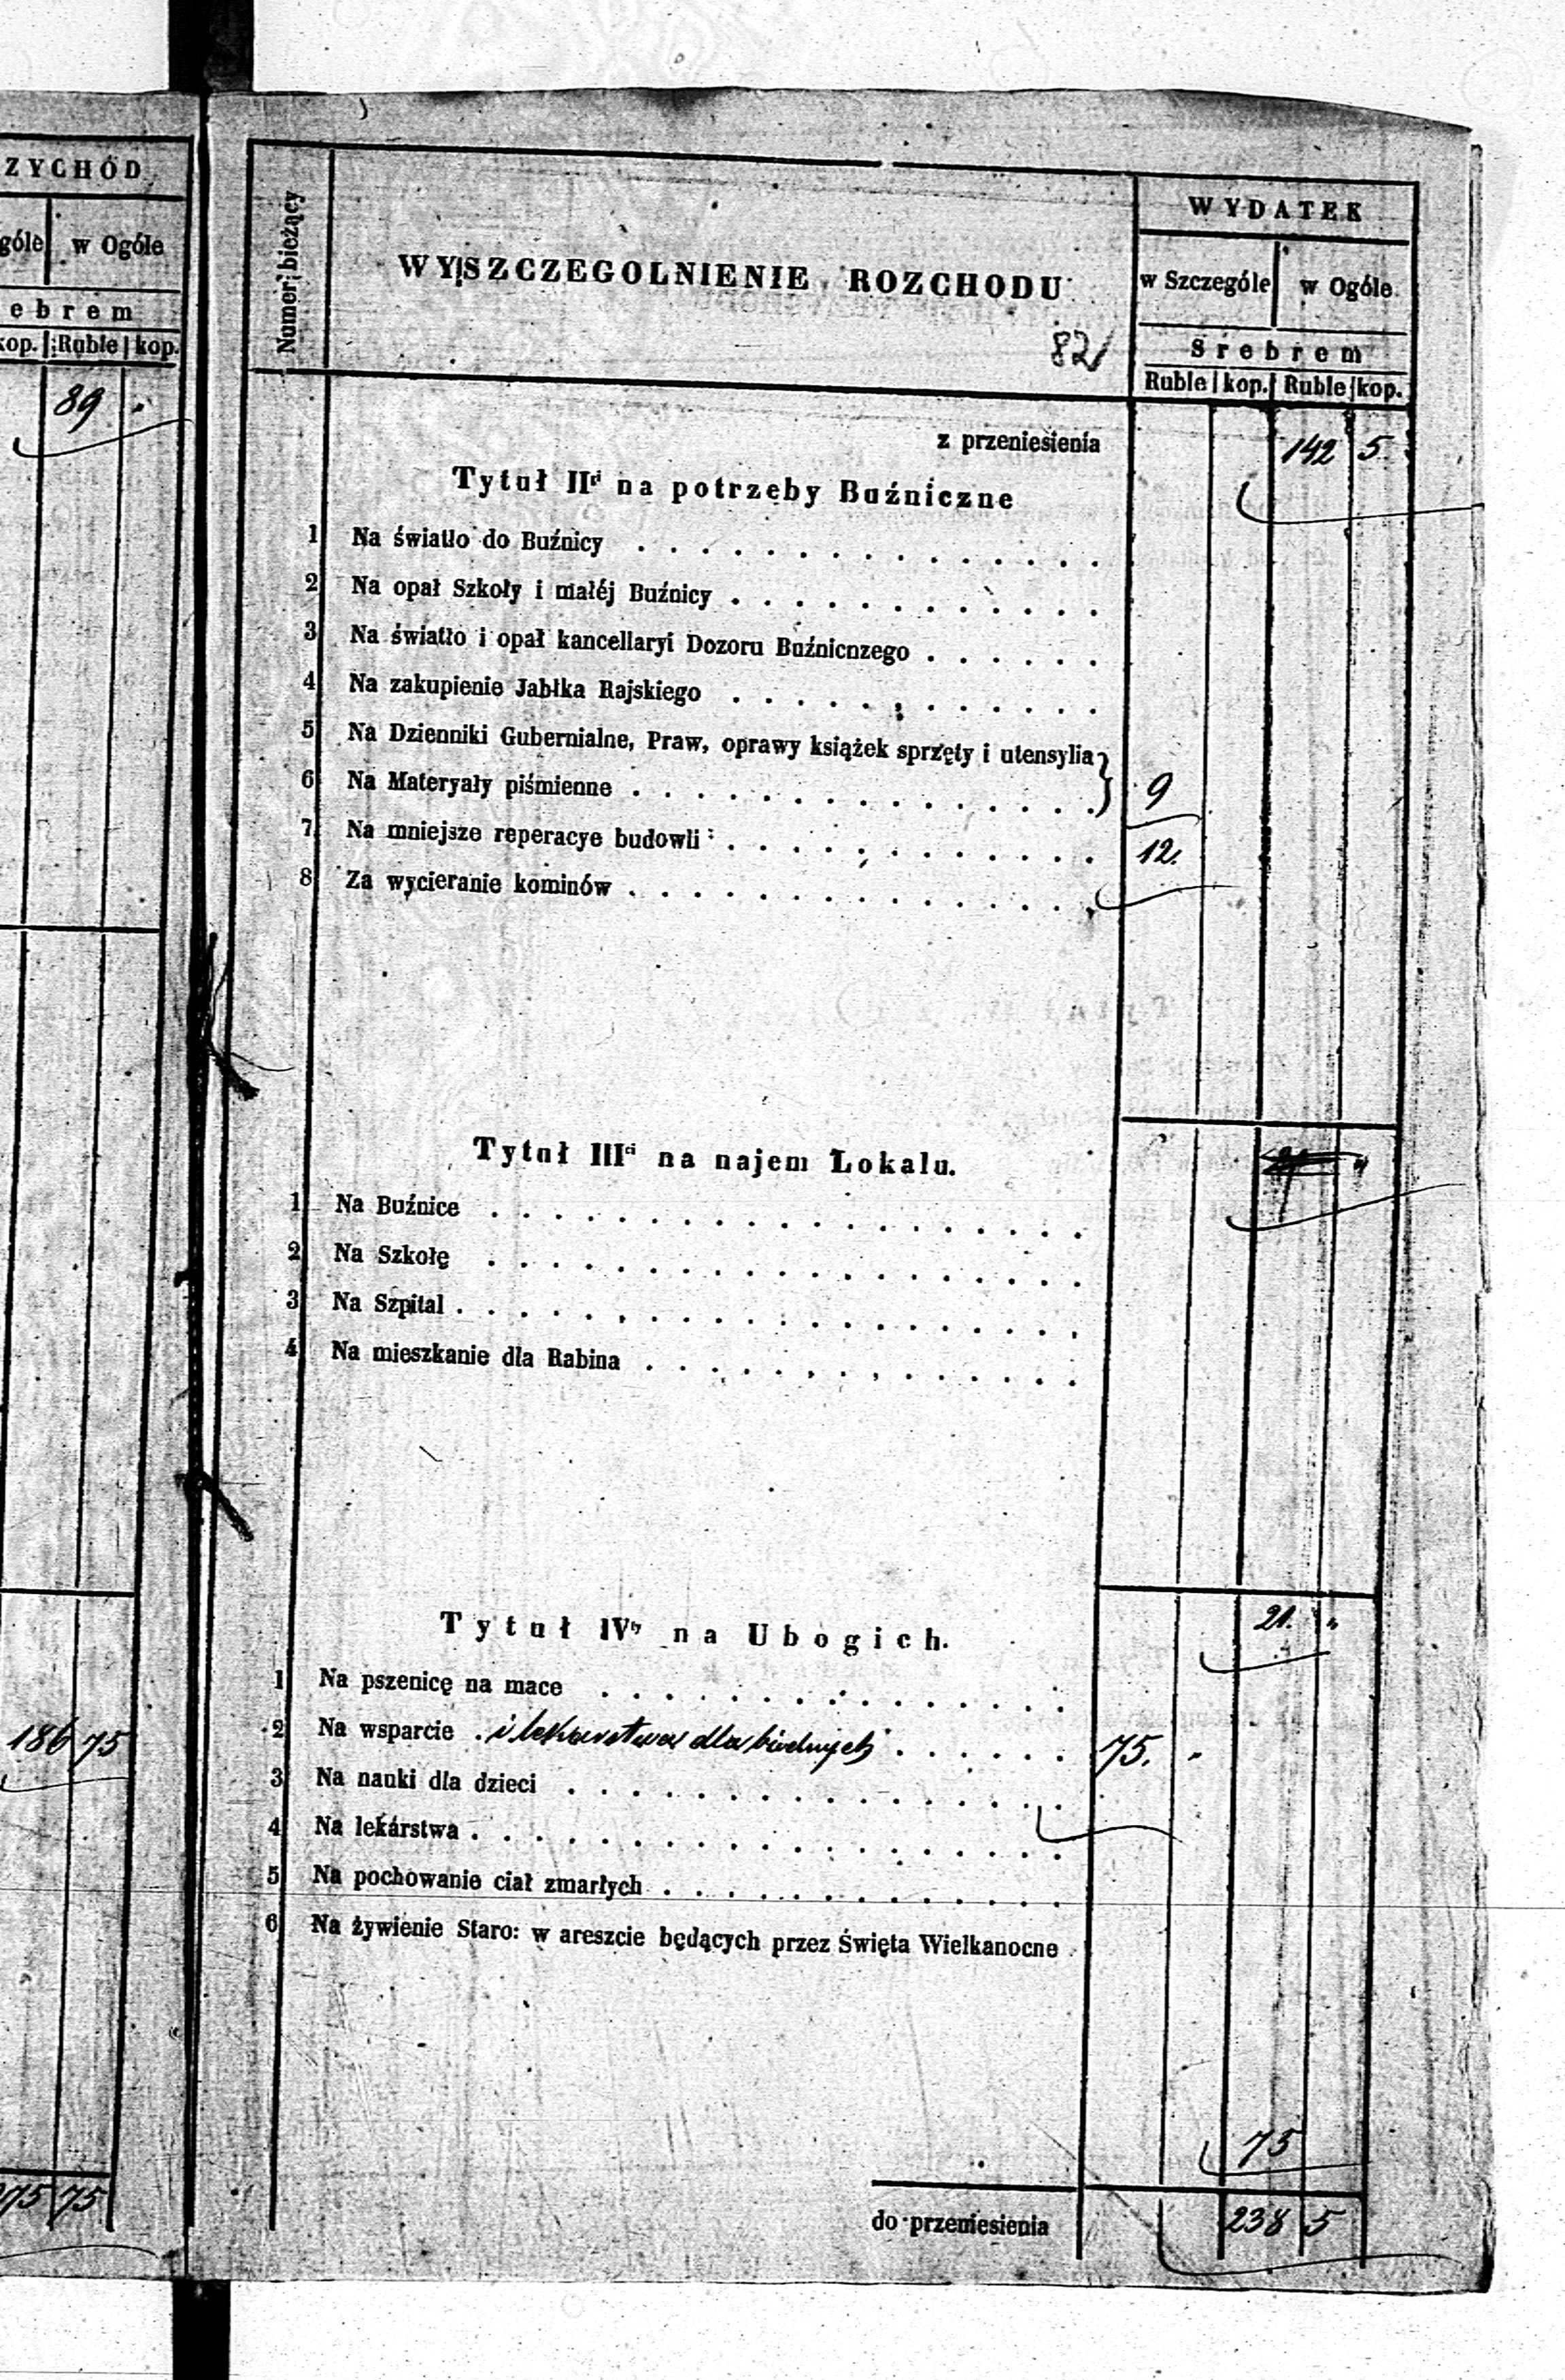 ZYCHÓD
góle w Ogóle
ebrem
kop. Ruble kop.
89 .
186 75
75 75
Numer bieżący
WYSZCZEGOLNIENIE ROZCHODU
82
WYDATEK
w Szczególe w Ogóle
Srebrem
Ruble kop. Ruble kop.
z przeniesienia 142 5
Tytuł IIgi na potrzeby Buźniczne
1 Na światło do Buźnicy
2 Na opał Szkoły i małéj Buźnicy
3 Na światło i opał kancellaryi Dozoru Buźnicnzego
4 Na zakupienie Jabłka Rajskiego
5 Na Dzienniki Gubernialne, Praw, oprawy książek sprzęty i utensylia
6 Na Materyały piśmienne 9
7 Na mniejsze reperacye budowli 12.
8 Za wycieranie kominów
Tytuł IIIci na najem Lokalu.
1 Na Buźnice
2 Na Szkołę
3 Na Szpital
4 Na mieszkanie dla Rabina
21. "
Tytuł IVty na Ubogich.
1 Na pszenicę na mace
2 Na wsparcie i lekarstwa dla biednych 75. "
3 Na nauki dla dzieci
4 Na lekárstwa
5 Na pochowanie ciał zmarłych
6 Na żywienie Staro: w areszcie będących przez Święta Wielkanocne
75
do przeniesienia 238 5